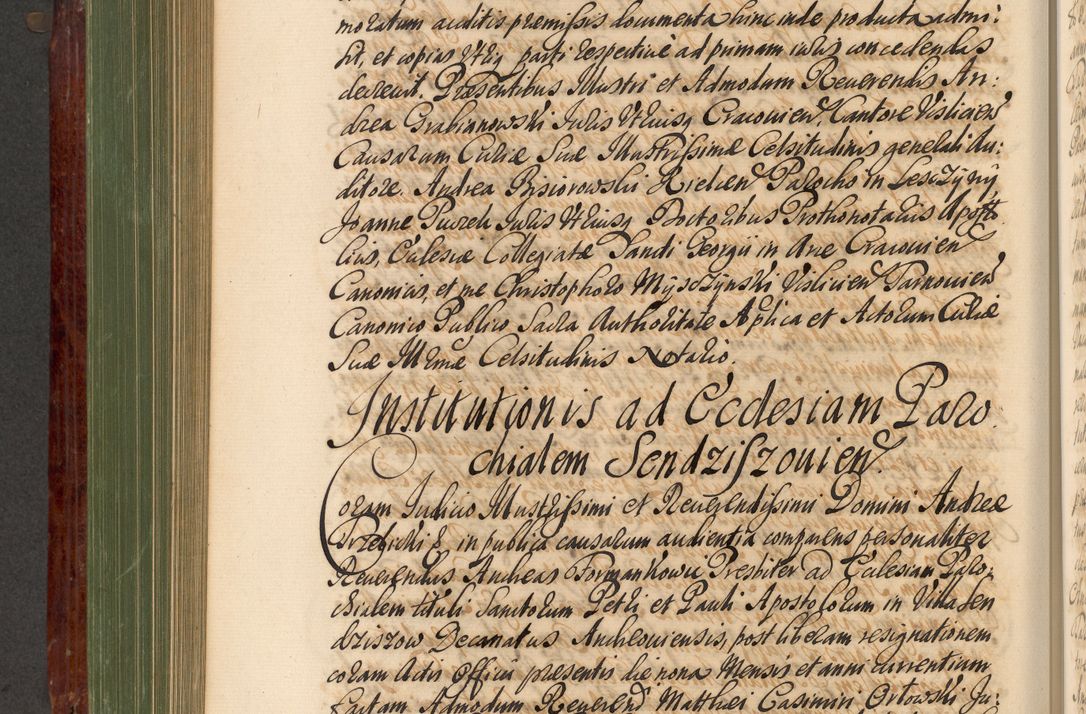 moratum auditis premissis documenta hinc inde producta admi:
sit, et copias utriq parti respectiuè ad primam iuris concedendas
decreuit. Præsentibus Illustri et Admodum Reuerendis An:
drea Grabianowski Juris Utriusq Cracouien, Cantore Vislicien
Causarum Curiæ Suæ Illustrissimæ Celsitudinis generali Au:
ditore, Andrea Parocho in Lesczyny
Joanne Puzeli Juris Utriusq Doctoribus Prothonotariis Apostto
licis, Eclesiæ Collegiatæ Sancti Georgii in Arce Cracouien
Canonicis, et me Christophoro Mysczynski Vislicien Tarnouien
Canonico Publico Sacra Authoritate Aplica et Actorum Curiæ
Suæ Illrmæ Celsitudinis Notario.
Institutionis ad Ecclesiam Paro
chialem Sendziszouien.
Coram Judicio Illustrissimi et Reuerendissimi Domini Andreæ
Trzebicki & in publica causarum audientia comparens personaliter
Reuerendus Andreas Formankowic Presbiter ad Eclesiam Paro:
chialem tituli Sanctorum Petri et Pauli Apostolorum in Villa Sen
dziszow Decanatus Andreouiensis, post liberam resignationem
coram Actis Officii presentis die nona Mensis et anni currentium
factam Admodum Reuerend Matthæi Casimiri Orłowski Ju: